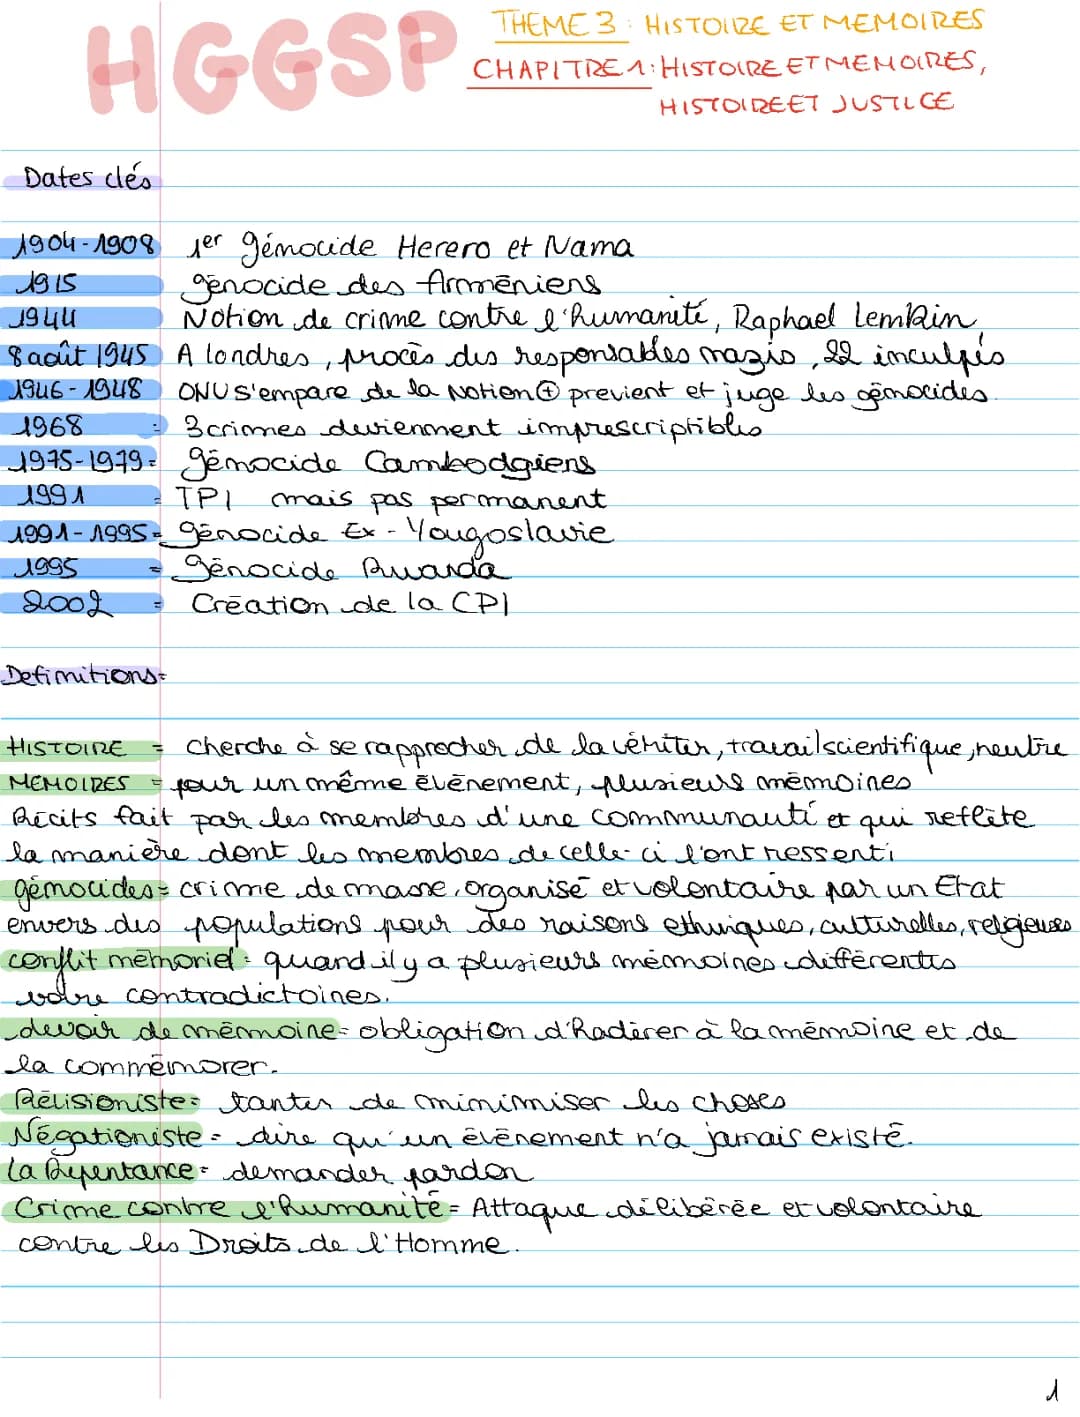 HGGSP
THEME 3 : HISTOIRE ET MEMOIRES
CHAPITRE 1 : HISTOIRE ET MEMOIRES,
HISTOIRE ET JUSTICE
Dates clés
1904-1908 1er génocide Herero et Nama
1915 génocide des Arméniens
1944 Notion de crime contre l'humanité, Raphael Lemkin
8 août 1945 A londres, procès des responsables nazis, 22 inculpés
1946-1948 ONU s'empare de la Notion ⊕ previent et juge les génocides.
1968 : 3 crimes deviennent imprescriptibles
1975-1979 = génocide Cambodgiens
1991 = TPI mais pas permanent
1991-1995 = génocide Ex-Yougoslavie
1995 = génocide Rwanda
2002 = Création de la CPI
Definitions =
HISTOIRE = cherche à se rapprocher de la vériter, travail scientifique, neutre
MEMOIRES = pour un même événement, plusieurs mémoires
Récits fait par les membres d'une communauté et qui reflète
la manière dont les membres de celle-ci l'ont ressenti
génocides = crime de masse, organisé et volontaire par un Etat
envers des populations pour des raisons ethniques, culturelles, religieuses
conflit mémoriel = quand il y a plusieurs mémoires différentes
voire contradictoires.
devoir de mémoire = obligation d'hadérer à la mémoire et de
la commémorer.
Révisioniste = tanter de minimiser les choses
Négationiste = dire qu'un événement n'a jamais existé.
la Repentance = demander pardon
Crime contre l'humanité = Attaque délibérée et volontaire
contre les Droits de l'Homme.
1